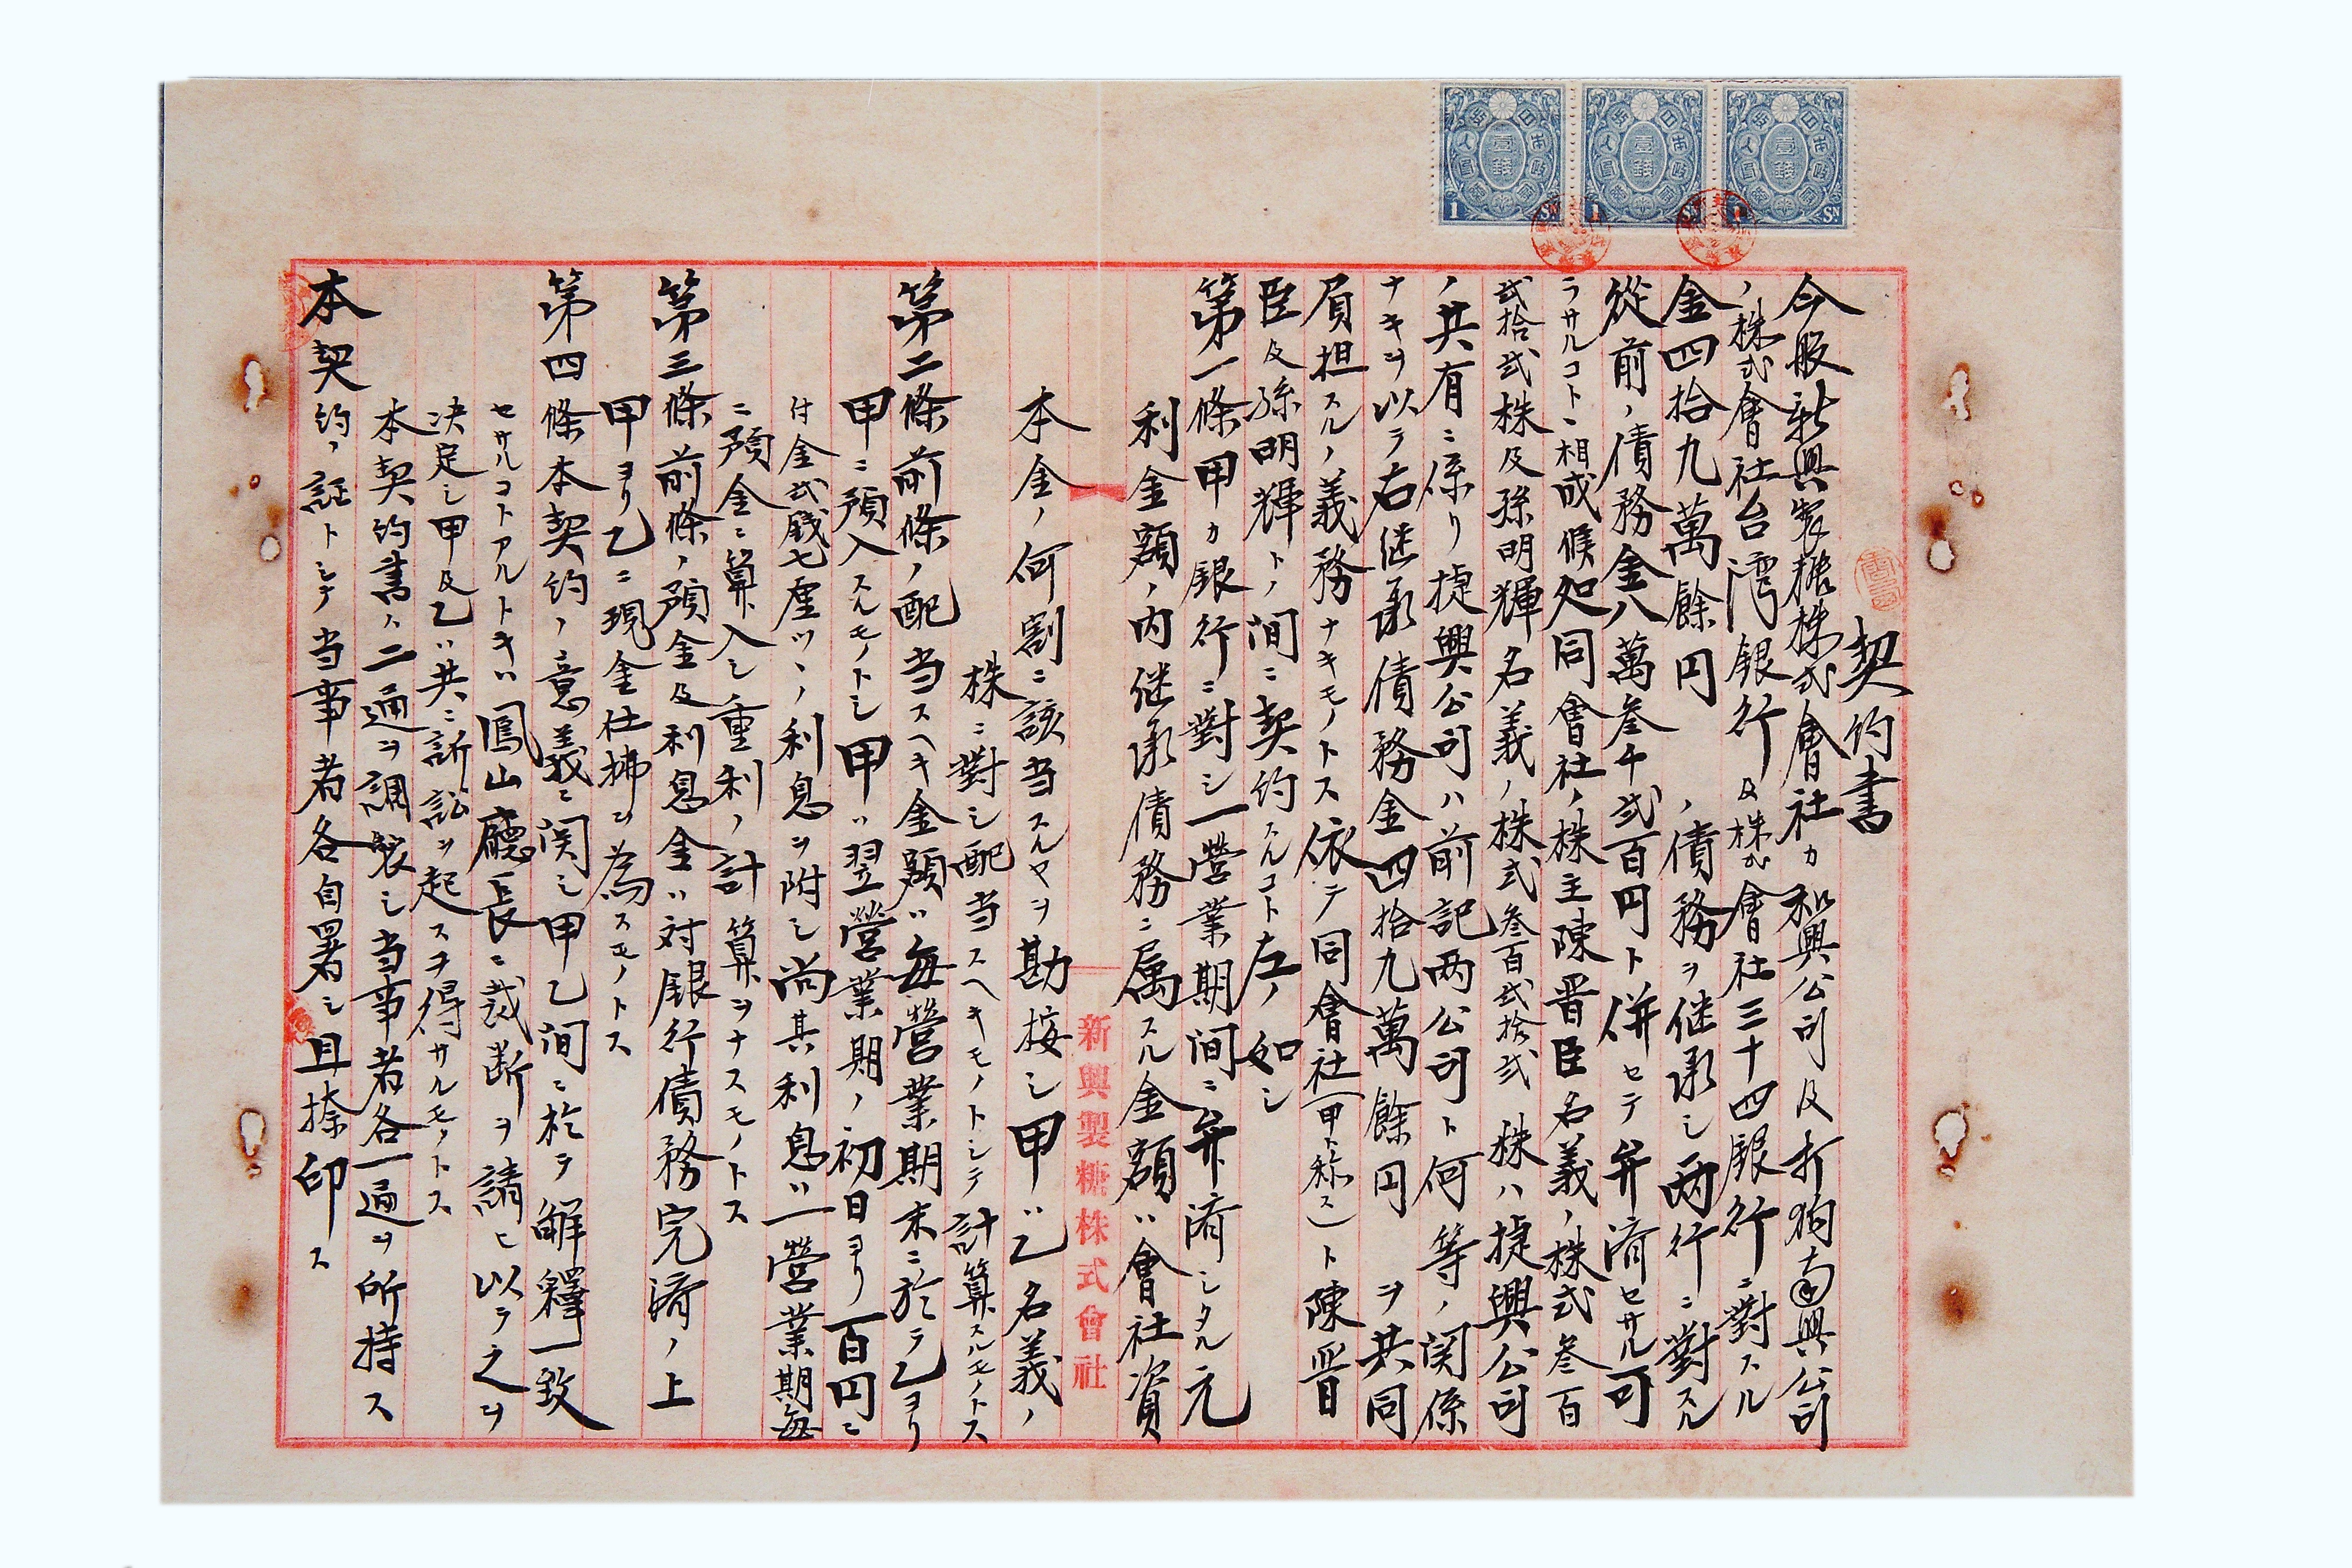 契約書
今般新興製糖株式會社カ和興公司及打狗南興公司
ノ株式會社台湾銀行及株式會社三十四銀行ニ對スル
金四拾九萬餘円ノ債務ヲ継承シ両行ニ對スル
從前ノ債務金八萬叁千弍百円ト併セテ弁濟セサル可
ラサルコトニ相成候処同會社ノ株主陳晋臣名義ノ株式叁百
弍拾弍株及孫明輝名義ノ株式叁百弍拾弍株ハ捷興公司
ノ共有ニ係リ捷興公司ハ前記両公司ト何等ノ関係
ナキヲ以テ右継承債務金四拾九萬餘円ヲ共同
負担スルノ義務ナキモノトス依テ同會社(甲ト称ス)ト陳晋
臣及孫明輝トノ间ニ契約スルコト左ノ如シ
第一條甲カ銀行ニ對シ一營業期间ニ弁濟シタル元
利金額ノ内継承債務ニ属スル金額ハ會社資
本金ノ何割ニ該当スルヤヲ勘桉シ甲ハ乙名義ノ
株ニ對シ配当スヘキモノトシテ計算スルモノトス
第二條前條ノ配当スヘキ金額ハ毎營業期末ニ於テ乙ヨリ
甲ニ預入スルモノトシ甲ハ翌營業期ノ初日ヨリ百円ニ
付金弍錢七厘ツヽノ利息ヲ附シ尚其利息ハ一營業期毎
ニ預金ニ算入シ重利ノ計算ヲナスモノトス
第三條前條ノ預金及利息金ハ対銀行債務完濟ノ上
甲ヨリ乙ニ現金仕拂ヲ為スモノトス
第四條本契約ノ意義ニ関シ甲乙间ニ於テ解釋一致
セサルコトアルトキハ鳳山廳長ニ裁断ヲ請ヒ以テ之ヲ
決定シ甲及乙ハ共ニ訴訟ヲ起スヲ得サルモノトス
本契約書ハ二通ヲ調製シ当事者各一通ヲ所持ス
本契約ノ証トシテ当事者各自署シ且捺印ス
新興製糖株式會社
壹錢
1 Sn
壹錢
1
壹錢
Sn